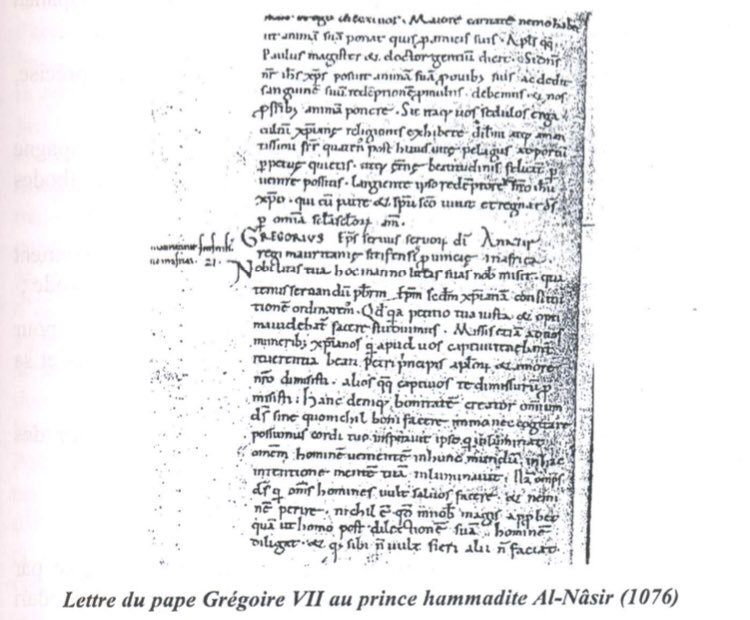 dilexi uos. Maiorē caritatē nemo habet
ut animā suā ponat quis p amicis suis. Apls qq
Paulus magister & doctor gentiū dicit. Si dns
nr ihs xps posuit animā suā p ouib; suis ac dedit
sanguinē suū redēptionē p multis. debemus & nos
p frib; animā ponere. Sic itaq; uos sedulos erga
cultū xpianę religionis exhibete dilmi atq; aman
tissimi frs quatenˀ post huius uitę pelagus ad portū
ppetuę quietis. atq; ętnę beatitudinis feliciter p
uenire possitis. Largiente ipso redēptore nro ihu
xpo. qui cū patre & spu sco uiuit et regnat ds
p omnia scla sclorū am.
GREGORIVS Eps seruus seruorū dī Anazir
regi mauritanię sitifensis puincię in africa.
Nobilitas tua hoc in anno litteras suas nob misit. qua
tenus seruandū pbrm Epm scdm xpianā constitu
tionē ordinarem. Qd qa petitio tua iusta & opti
ma uidebat facere studuimus. Missis etiā ad nos
muneribˀ xpianos q apud uos captiui tenebant
reuerentia beati petri principis aplorū & amore
nro dimisisti. alios qq captiuos te dimissurū p
misisti. Hanc deniq; bonitatē creator omnium
ds sine quo nichil boni facere immo nec cogitare
possumus cordi tuo inspirauit ipse q illuminat
omēm hominē uenientē in hunc mundū. in hac
intentione mentē tuā inluminauit. Nā omps
ds q oms homines uult saluos facere & nemi
nē perire. nichil ē qd in nob magis approbet
quā ut homo post dilectionē suā hominē
diligat. & qd sibi n uult fieri alii n faciat
Lettre du pape Grégoire VII au prince hammadite Al-Nâsir (1076)